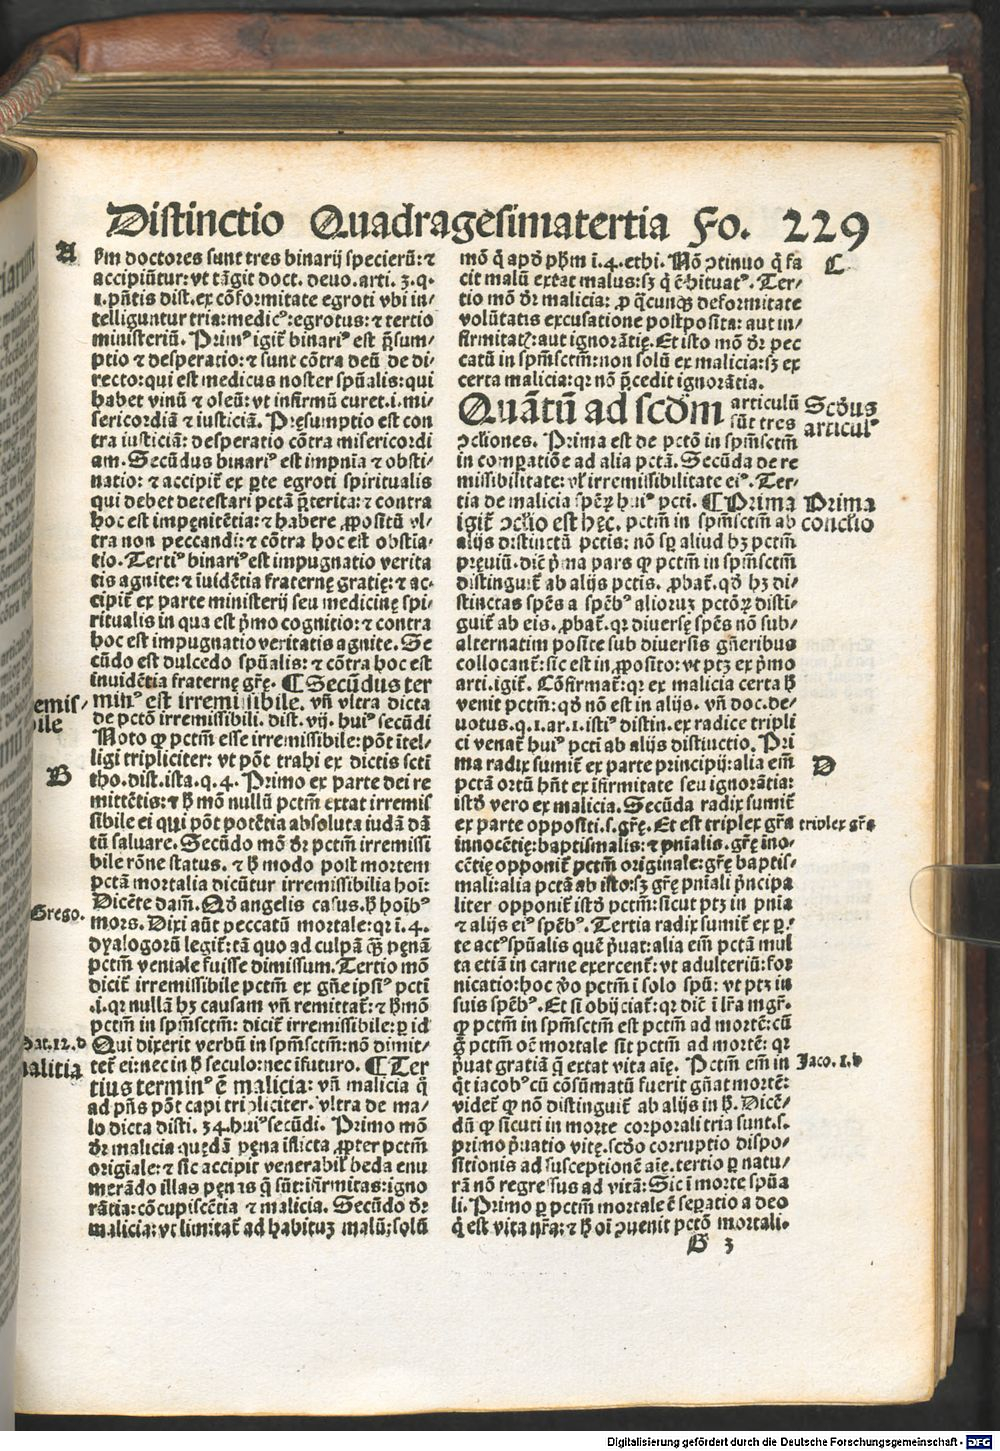 Distinctio Quadragesimatertia Fo. 229
A
ẜm doctores sunt tres binarij specierũ: ⁊
accipiũtur: vt tãgit doct. deuo. arti. 3. q.
1. pñtis dist. ex cõformitate egroti vbi in⸗
telliguntur tria: medicꝰ: egrotus: ⁊ tertio
ministeriũ. Primꝰ igit̃ binariꝰ est p̃sum⸗
ptio ⁊ desperatio: ⁊ sunt cõtra deũ de di⸗
recto: qui est medicus noster spũalis: qui
habet vinũ ⁊ oleũ: vt infirmũ curet. i. mi⸗
sericordiã ⁊ iusticiã. Pręsumptio est con
tra iusticiã: desperatio cõtra misericordi
am. Secũdus binariꝰ est impnĩa ⁊ obsti⸗
natio: ⁊ accipit̃ ex ꝑte egroti spiritualis
qui debet detestari pctã p̃terita: ⁊ contra
hoc est impęnitẽtia: ⁊ habere ꝓpositũ vl⸗
tra non peccandi: ⁊ cõtra hoc est obstia⸗
tio. Tertiꝰ binariꝰ est impugnatio verita
tis agnite: ⁊ ĩuidẽtia fraternę gratię: ⁊ ac⸗
cipit̃ ex parte ministerij seu medicinę spi⸗
ritualis in qua est p̃mo cognitio: ⁊ contra
hoc est impugnatio veritatis agnite. Se
cũdo est dulcedo spũalis: ⁊ cõtra hoc est
inuidẽtia fraternę gr̃ę. ¶ Secũdus ter
minꝰ est irremissibile. vñ vltra dicta
de pctõ irremissibili. dist. vij. huiꝰ secũdi
Noto ꝙ pctm̃ esse irremissibile: põt ĩtel⸗
ligi tripliciter: vt põt trahi ex dictis scti
tho. dist. ista. q. 4. Primo ex parte dei re
mittẽtis: ⁊ ħ mõ nullũ pctm̃ extat irremis
sibile ei qui põt potẽtia absoluta iudã dã
tũ saluare. Secũdo mõ dr̃ pctm̃ irremissi
bile rõne status. ⁊ ħ modo post mortem
pctã mortalia dicũtur irremissibilia hoĩ:
Dicẽte dam̃. Qđ angelis casus. ħ hoĩbꝰ
mors. Dixi aũt peccatũ mortale: qr ĩ. 4.
dyalogorũ legit̃: tã quo ad culpã ꝙ̃ pęnã
pctm̃ veniale fuisse dimissum. Tertio mõ
dicit̃ irremissibile pctm̃ ex gñe ipsiꝰ pcti
.i. qr nullã hꝫ causam vñ remittat̃: ⁊ ħ mõ
pctm̃ in spm̃sctm̃: dicit̃ irremissibile: ꝑ id
Qui dixerit verbũ in spm̃sctm̃: nõ dimit⸗
tet̃ ei: nec in ħ seculo: nec ĩfuturo. ¶ Ter
tius terminꝰ ẽ malicia: vñ malicia q̃
ad pñs põt capi tripliciter. vltra de ma⸗
lo dicta disti. 34. huiꝰ secũdi. Primo mõ
dr̃ malicia quędã pęna ĩflicta ꝓpter pctm̃
origiale: ⁊ sic accipit venerabil̃ beda enu
merãdo illas pęnas q̃ sũt: ĩfirmitas: igno
rãtia: cõcupiscẽtia ⁊ malicia. Secũdo dr̃
malicia: vt limitat̃ ad habituꝫ malũ: solũ
emis⸗
bile
B
Grego.
Mat. 12. d
malitia
mõ q̃ apđ ph̃m ĩ. 4. ethi. Nõ ↄtinuo q̃ fa
cit malũ extat malus: sꝫ q̃ ẽ hituatꝰ. Ter⸗
tio mõ dr̃ malicia: ꝓ q̃cunqꝫ deformitate
volũtatis excusatione postposita: aut in⸗
firmitatꝭ: aut ignorãtię. Et isto mõ dr̃ pec
catũ in spm̃sctm̃: non solũ ex malicia: sꝫ ex
certa malicia: qr nõ p̃cedit ignorãtia.
Quãtũ ad scđm articulũ
sũt tres
ↄclĩones. Prima est de pctõ in spm̃sctm̃
in comꝑatiõe ad alia pctã. Secũda de re
missibilitate: vł irremissibilitate eiꝰ. Ter⸗
tia de malicia spẽꝝ huiꝰ pcti. ¶ Prima
igit̃ ↄclĩo est hęc. pctm̃ in spm̃sctm̃ ab
alijs distinctũ pctis: nõ sꝑ aliud hꝫ pctm̃
pręuiũ. dic̃ p̃ma pars ꝙ pctm̃ in spm̃sctm̃
distinguit̃ ab alijs pctis. ꝓbat̃. qđ hꝫ di⸗
stinctas spẽs a spẽbꝰ alioruꝫ pctõꝝ disti⸗
guit̃ ab eis. ꝓbat̃. qr diuersę spẽs nõ sub⸗
alternatim posite sub diuersis gñeribus
collocant̃: sic est in ꝓposito: vt ptꝫ ex p̃mo
arti. igit̃. Cõfirmat̃: qr ex malicia certa ħ
venit pctm̃: qđ nõ est in alijs. vñ doc. de⸗
uotus. q. 1. ar. 1. istiꝰ distin. ex radice tripli
ci venat̃ huiꝰ pcti ab alijs distinctio. Pri
ma radix sumit̃ ex parte principij: alia em̃
pctã ortũ hñt ex ĩfirmitate seu ignorãtia:
istđ vero ex malicia. Secũda radix sumit̃
ex parte oppositi. s. gr̃ę. Et est triplex gr̃a
innocẽtię: baptismalis: ⁊ pnialis. gr̃ę ino⸗
cẽtię opponit̃ pctm̃ originale: gr̃ę baptis⸗
mali: alia pctã ab isto: sꝫ gr̃ę pniali p̃ncipa
liter opponit̃ istđ pctm̃: sicut ptꝫ in pnia
⁊ alijs eiꝰ spẽbꝰ. Tertia radix sumit̃ ex ꝑ⸗
te actꝰ spũalis quẽ p̃uat: alia em̃ pctã mul
ta etiã in carne exercent̃: vt adulteriũ: for
nicatio: hoc ṽo pctm̃ ĩ solo spũ: vt ptꝫ in
suis spẽbꝰ. Et si obijciat̃: qr dic̃ ĩ lr̃a mgr̃.
ꝙ pctm̃ in spm̃sctm̃ est pctm̃ ad mortẽ: cũ
g̃ pctm̃ oẽ mortale sit pctm̃ ad mortẽ: qr
p̃uat gratiã q̃ extat vita aię. Pctm̃ em̃ in
q̃t iacobꝰ cũ cõsũmatũ fuerit gñat mortẽ:
videt̃ ꝙ nõ distinguit̃ ab alijs in ħ. Dicẽ⸗
dũ ꝙ sicuti in morte corporali tria sunt. s.
primo p̃uatio vitę. scđo corruptio dispo⸗
sitionis ad susceptionẽ aię. tertio ꝑ natu⸗
rã nõ regressus ad vitã: Sic ĩ morte spũa
li. Primo ꝑ pctm̃ mortale ẽ seꝑatio a deo
q̃ est vita nr̃a: ⁊ ħ oĩ ꝯuenit pctõ mortali.
C
Scđus
articulꝰ
Prima
conclio
D
triplex gr̃a
Jaco. 1. b
B 3
Digitalisierung gefördert durch die Deutsche Forschungsgemeinschaft - DFG